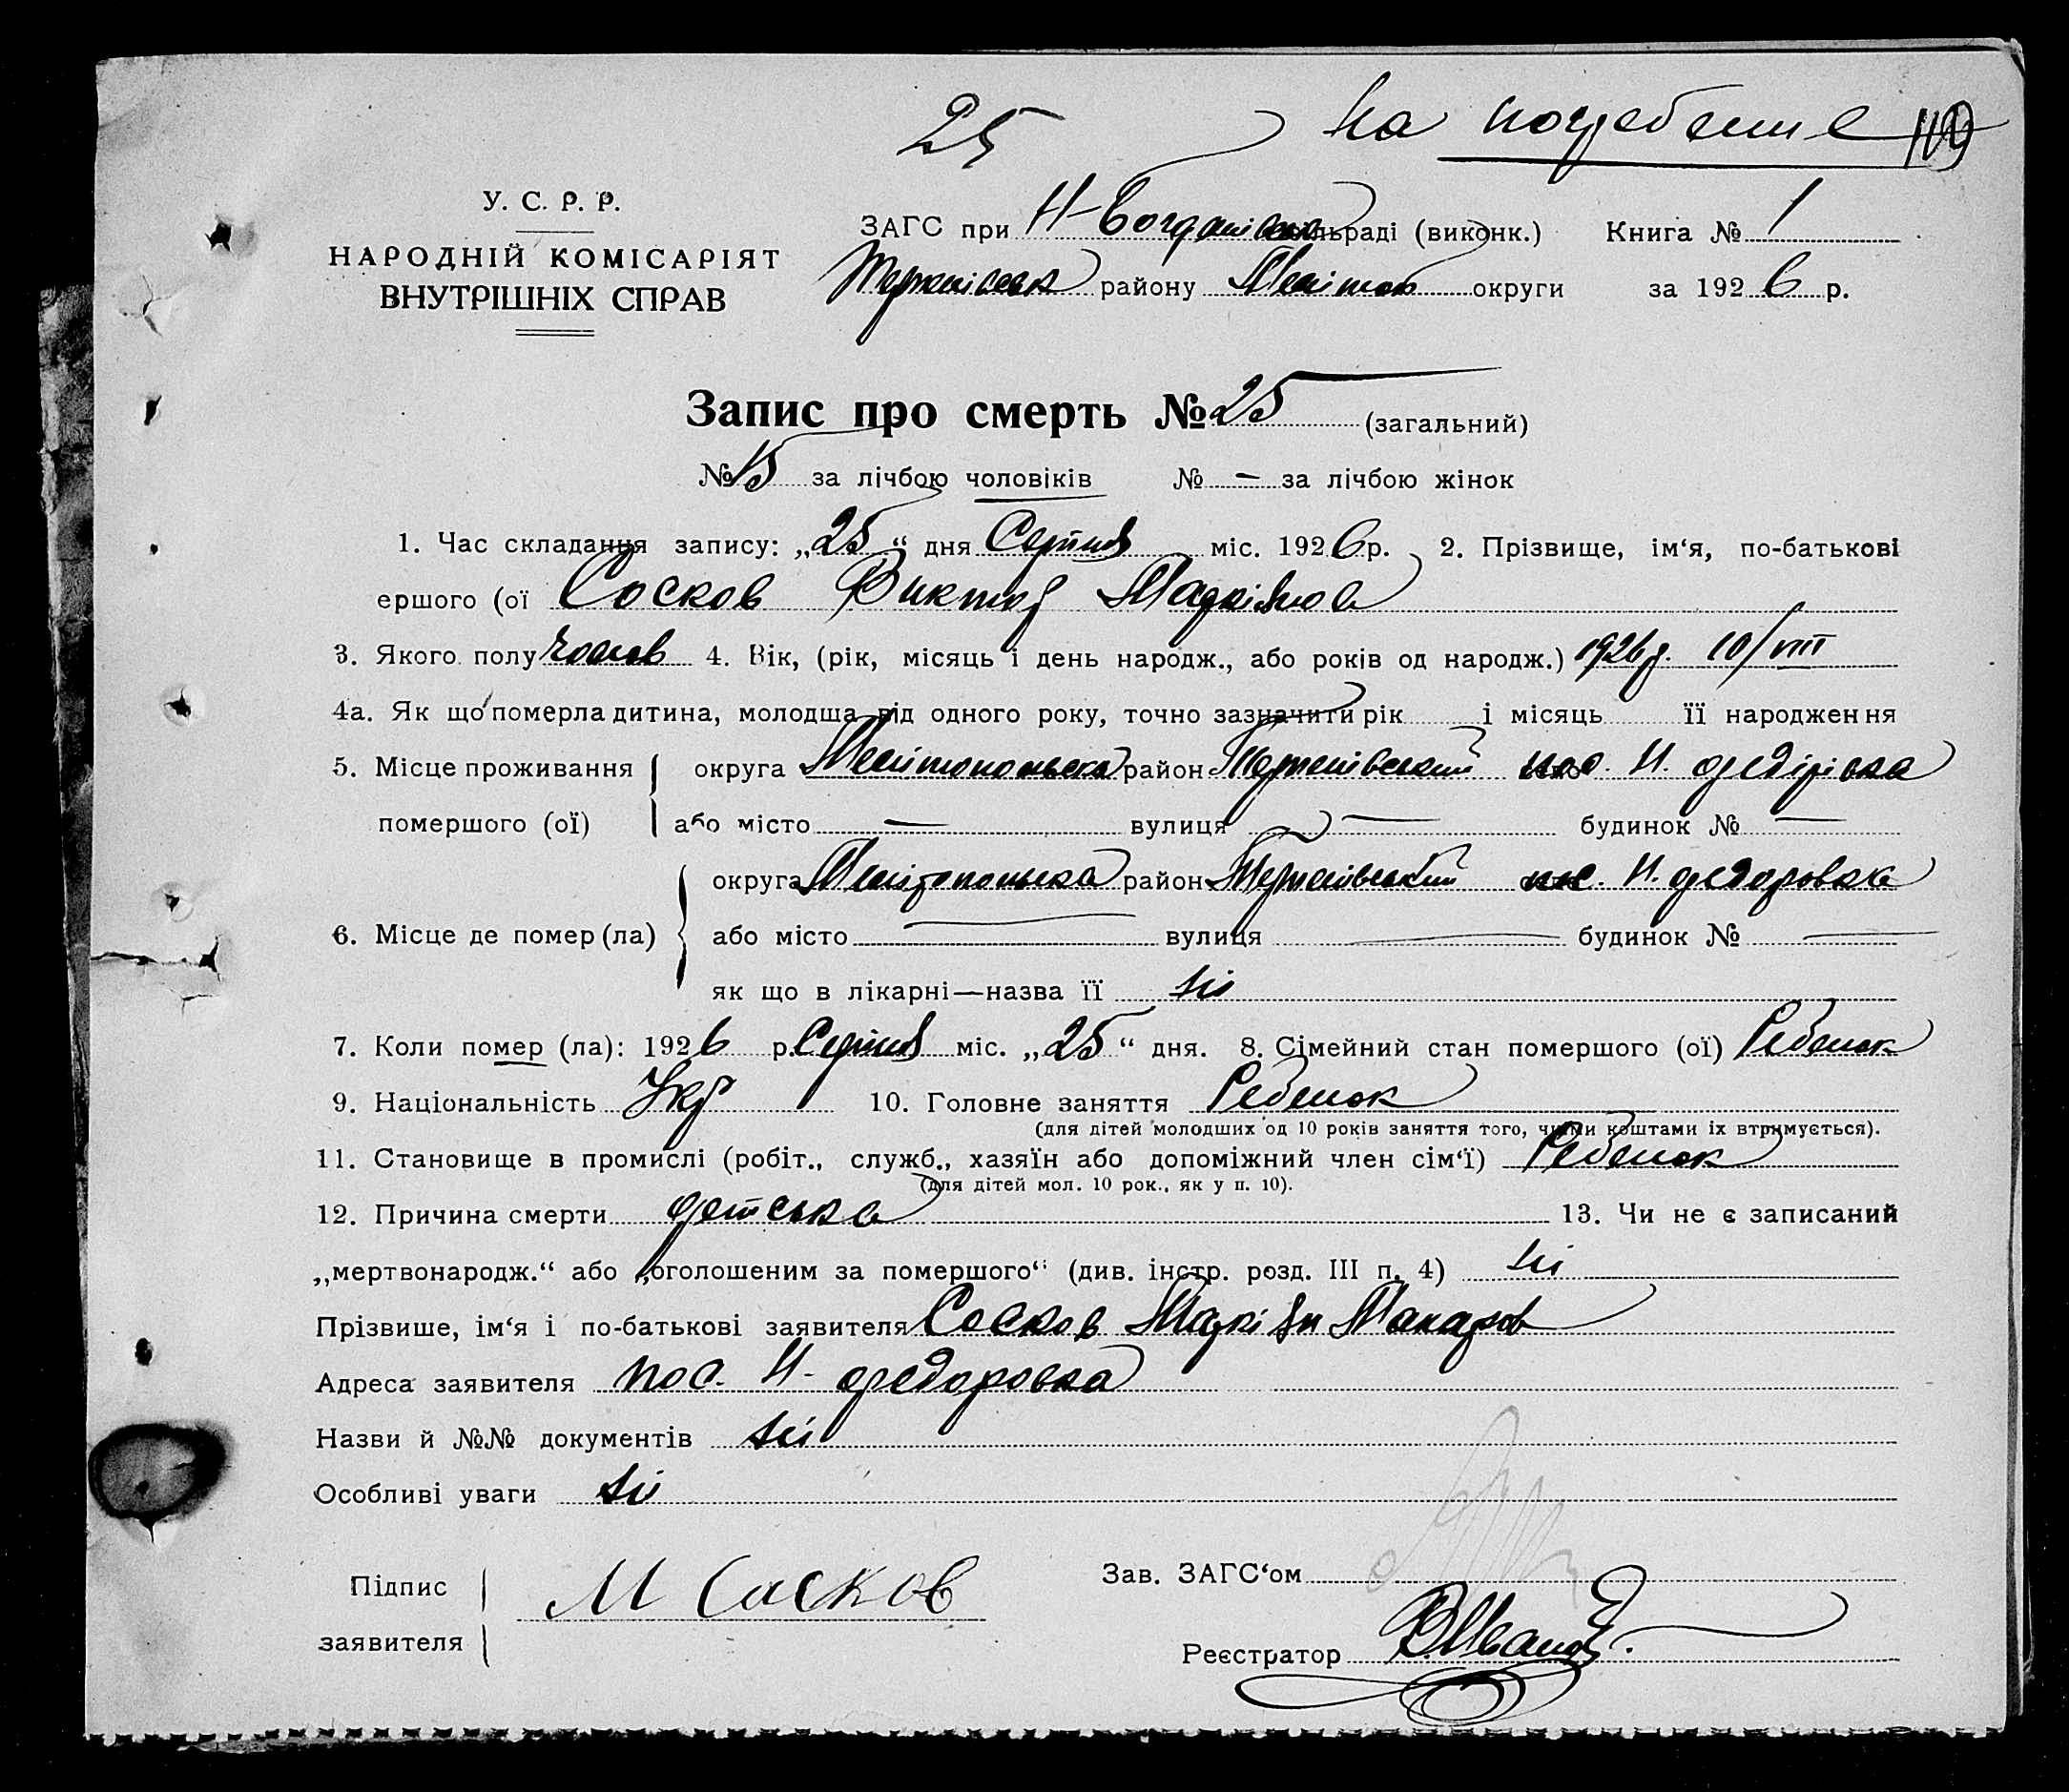 25 на погребение 109
У. С. Р. Р.
НАРОДНІЙ КОМІСАРІЯТ
ВНУТРІШНІХ СПРАВ
ЗАГС при Н-Богданівск сільраді (виконк.) Книга № 1
району Меліт округи за 1926 р.
Запис про смерть № 25 (загальний)
№ 15 за лічбою чоловіків № — за лічбою жінок
1. Час складання запису: „25“ дня Серпня міс. 1926 р. 2. Прізвище, ім‘я, по-батькові
ершого (ої Сосков Виктор
3. Якого полу чолов 4. Вік, (рік, місяць і день народж., або років од народж.) 1926 р. 10/VIII
4а. Як що померла дитина, молодша від одного року, точно зазначити рік і місяць її народження
5. Місце проживання округа Мелітопольска район пос. Н. Федірівка
помершого (ої) або місто — вулиця — будинок № —
округа Мелітопольска район пос. Н. Федоровка
6. Місце де помер (ла) або місто — вулиця — будинок № —
як що в лікарні—назва її ні
7. Коли помер (ла): 1926 р. Серпня міс. „25“ дня. 8. Сімейний стан помершого (ої) Ребенок
9. Національність Укр 10. Головне заняття Ребенок
(для дітей молодших од 10 років заняття того, чиїми коштами їх втримується).
11. Становище в промислі (робіт., служб., хазяїн або допоміжний член сім‘ї) Ребенок
(для дітей мол. 10 рок., як у п. 10).
12. Причина смерти детська 13. Чи не є записаний
„мертвонародж.“ або „оголошеним за помершого“ (див. інстр. розд. III п. 4) ні
Прізвише, ім‘я і по-батькові заявителя Сосков Макаров
Адреса заявителя пос. Н-Федоровка
Назви й №№ документів ні
Особливі уваги ні
Підпис заявителя М Сосков
Зав. ЗАГС‘ом
Реєстратор